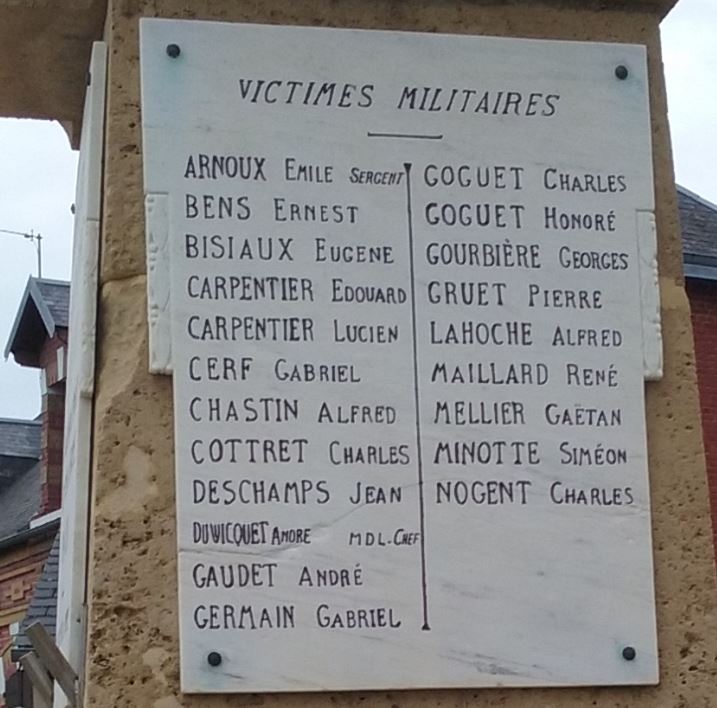 VICTIMES MILITAIRES
ARNOUX EMILE SERGENT
BENS ERNEST
BISIAUX EUGENE
CARPENTIER EDOUARD
CARPENTIER LUCIEN
CERF GABRIEL
CHASTIN ALFRED
COTTRET CHARLES
DESCHAMPS JEAN
DUWICQUET ANDRE MDL-CHEF
GAUDET ANDRÉ
GERMAIN GABRIEL
GOGUET CHARLES
GOGUET HONORÉ
GOURBIÈRE GEORGES
GRUET PIERRE
LAHOCHE ALFRED
MAILLARD RENÉ
MELLIER GAËTAN
MINOTTE SIMÉON
NOGENT CHARLES